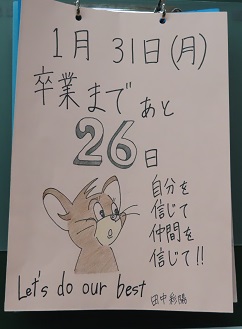 1月 31日(月)
卒業まで あと
26日
自分を
信じて
仲間を
信じて!!
Let's do our best
田中彩陽